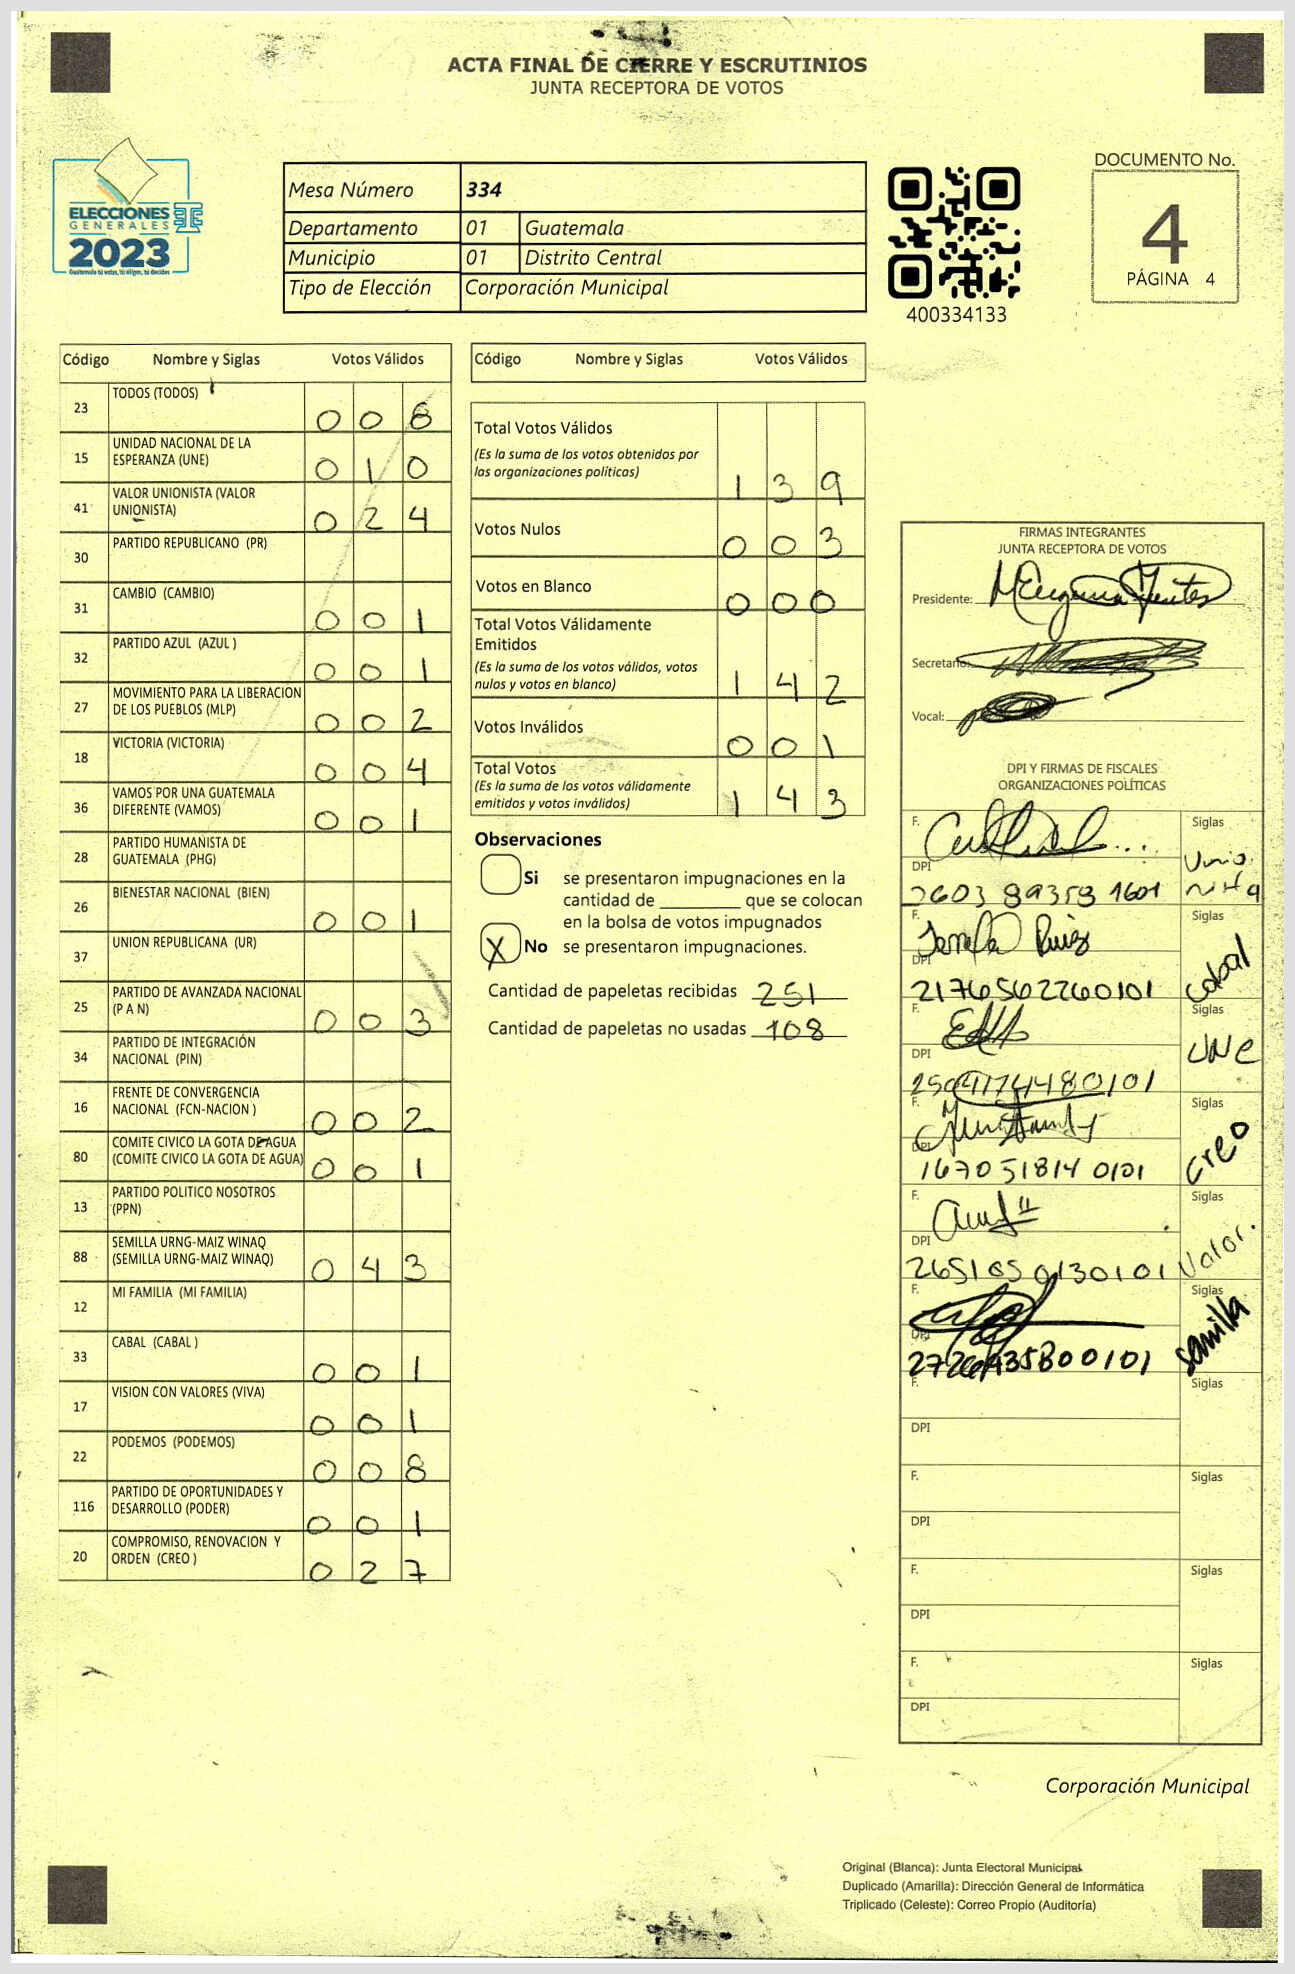 ACTA FINAL DE CIERRE Y ESCRUTINIOS
JUNTA RECEPTORA DE VOTOS
ELECCIONES
GENERALES
2023
Guatemala tú votas, tú eliges, tú decides
Mesa Número 334
Departamento 01 Guatemala
Municipio 01 Distrito Central
Tipo de Elección Corporación Municipal
400334133
DOCUMENTO No.
4
PÁGINA 4
Código Nombre y Siglas Votos Válidos
23 TODOS (TODOS) 0 0 8
15 UNIDAD NACIONAL DE LA
ESPERANZA (UNE) 0 1 0
41 VALOR UNIONISTA (VALOR
UNIONISTA) 0 2 4
30 PARTIDO REPUBLICANO (PR)
31 CAMBIO (CAMBIO) 0 0 1
32 PARTIDO AZUL (AZUL ) 0 0 1
27 MOVIMIENTO PARA LA LIBERACION
DE LOS PUEBLOS (MLP) 0 0 2
18 VICTORIA (VICTORIA) 0 0 4
36 VAMOS POR UNA GUATEMALA
DIFERENTE (VAMOS) 0 0 1
28 PARTIDO HUMANISTA DE
GUATEMALA (PHG)
26 BIENESTAR NACIONAL (BIEN) 0 0 1
37 UNION REPUBLICANA (UR)
25 PARTIDO DE AVANZADA NACIONAL
(P A N) 0 0 3
34 PARTIDO DE INTEGRACIÓN
NACIONAL (PIN)
16 FRENTE DE CONVERGENCIA
NACIONAL (FCN-NACION ) 0 0 2
80 COMITE CIVICO LA GOTA DE AGUA
(COMITE CIVICO LA GOTA DE AGUA) 0 0 1
13 PARTIDO POLITICO NOSOTROS
(PPN)
88 SEMILLA URNG-MAIZ WINAQ
(SEMILLA URNG-MAIZ WINAQ) 0 4 3
12 MI FAMILIA (MI FAMILIA)
33 CABAL (CABAL ) 0 0 1
17 VISION CON VALORES (VIVA) 0 0 1
22 PODEMOS (PODEMOS) 0 0 8
116 PARTIDO DE OPORTUNIDADES Y
DESARROLLO (PODER) 0 0 1
20 COMPROMISO, RENOVACION Y
ORDEN (CREO ) 0 2 7
Código Nombre y Siglas Votos Válidos
Total Votos Válidos
(Es la suma de los votos obtenidos por
las organizaciones políticas) 1 3 9
Votos Nulos 0 0 3
Votos en Blanco 0 0 0
Total Votos Válidamente
Emitidos
(Es la suma de los votos válidos, votos
nulos y votos en blanco) 1 4 2
Votos Inválidos 0 0 1
Total Votos
(Es la suma de los votos válidamente
emitidos y votos inválidos) 1 4 3
Observaciones
Si se presentaron impugnaciones en la
cantidad de ________ que se colocan
en la bolsa de votos impugnados
X No se presentaron impugnaciones.
Cantidad de papeletas recibidas 251
Cantidad de papeletas no usadas 108
FIRMAS INTEGRANTES
JUNTA RECEPTORA DE VOTOS
Presidente:
Secretario:
Vocal:
DPI Y FIRMAS DE FISCALES
ORGANIZACIONES POLÍTICAS
F. Siglas
DPI
2603 89359 1601
F. Siglas
Ruiz
DPI cabal
2176562260101
F. Siglas
DPI UNE
F. Siglas
DPI creo
167051814 0101
F. Siglas
DPI Valor.
F. Siglas
DPI semilla
F. Siglas
DPI
F. Siglas
DPI
F. Siglas
DPI
F. Siglas
DPI
Corporación Municipal
Original (Blanca): Junta Electoral Municipal
Duplicado (Amarilla): Dirección General de Informática
Triplicado (Celeste): Correo Propio (Auditoría)